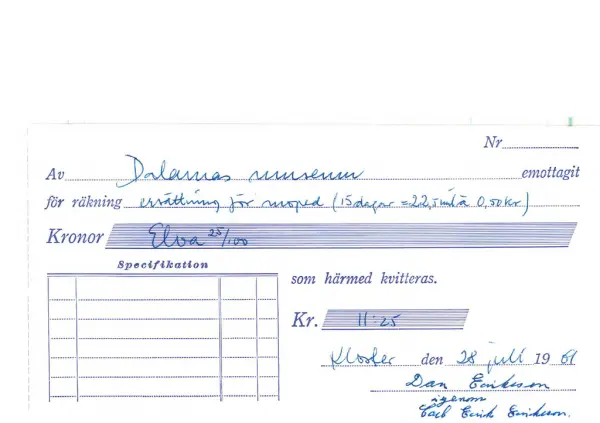 Nr
Av Dalarnas museum emottagit
för räkning ersättning för moped (15 dagar = 22,5 mil à 0,50 kr)
Kronor Elva 25/100
Specifikation
som härmed kvitteras.
Kr. 11:25
Kloster den 28 juli 1961
Dan Eriksson
igenom
Carl Erik Eriksson.